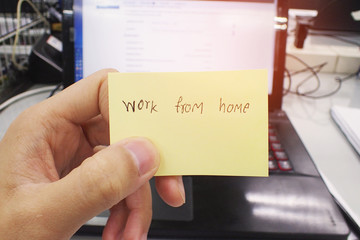 work from home